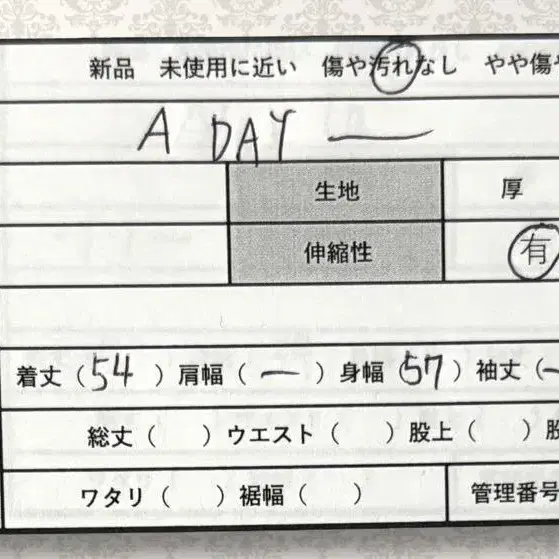 新品 未使用に近い 傷や汚れなし やや傷や
A DAY —
生地 厚
伸縮性 有
着丈（54）肩幅（—）身幅（57）袖丈（—
総丈（ ）ウエスト（ ）股上（ ）股
ワタリ（ ）裾幅（ ） 管理番号